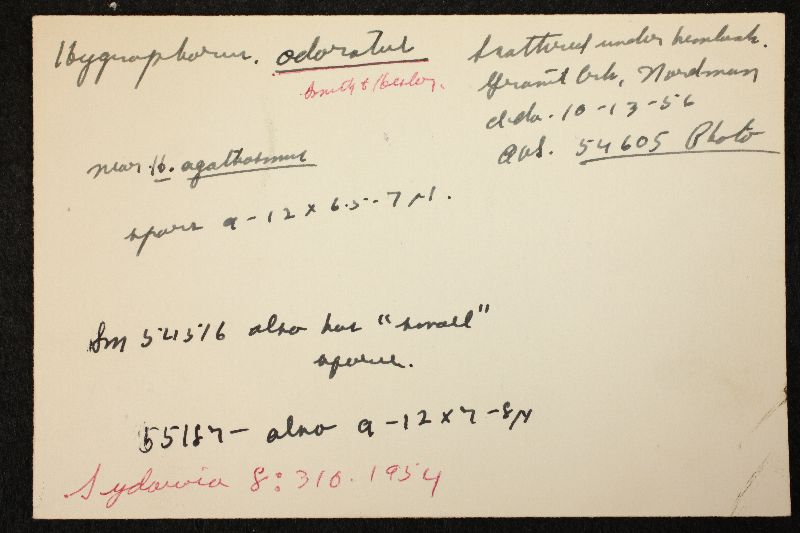 Hygrophorus. odoratus
Smith & Hesler.
Scattered under hemlock.
Granite Crk, Nordman
Ida. 10-13-56
AHS. 54605 Photo
near H. agathosmus
spores 9-12 x 6.5-7 µ.
Sm 54516 also has "small"
spores.
55187- also 9-12 x 7-8µ
Sydowia 8: 310. 1954